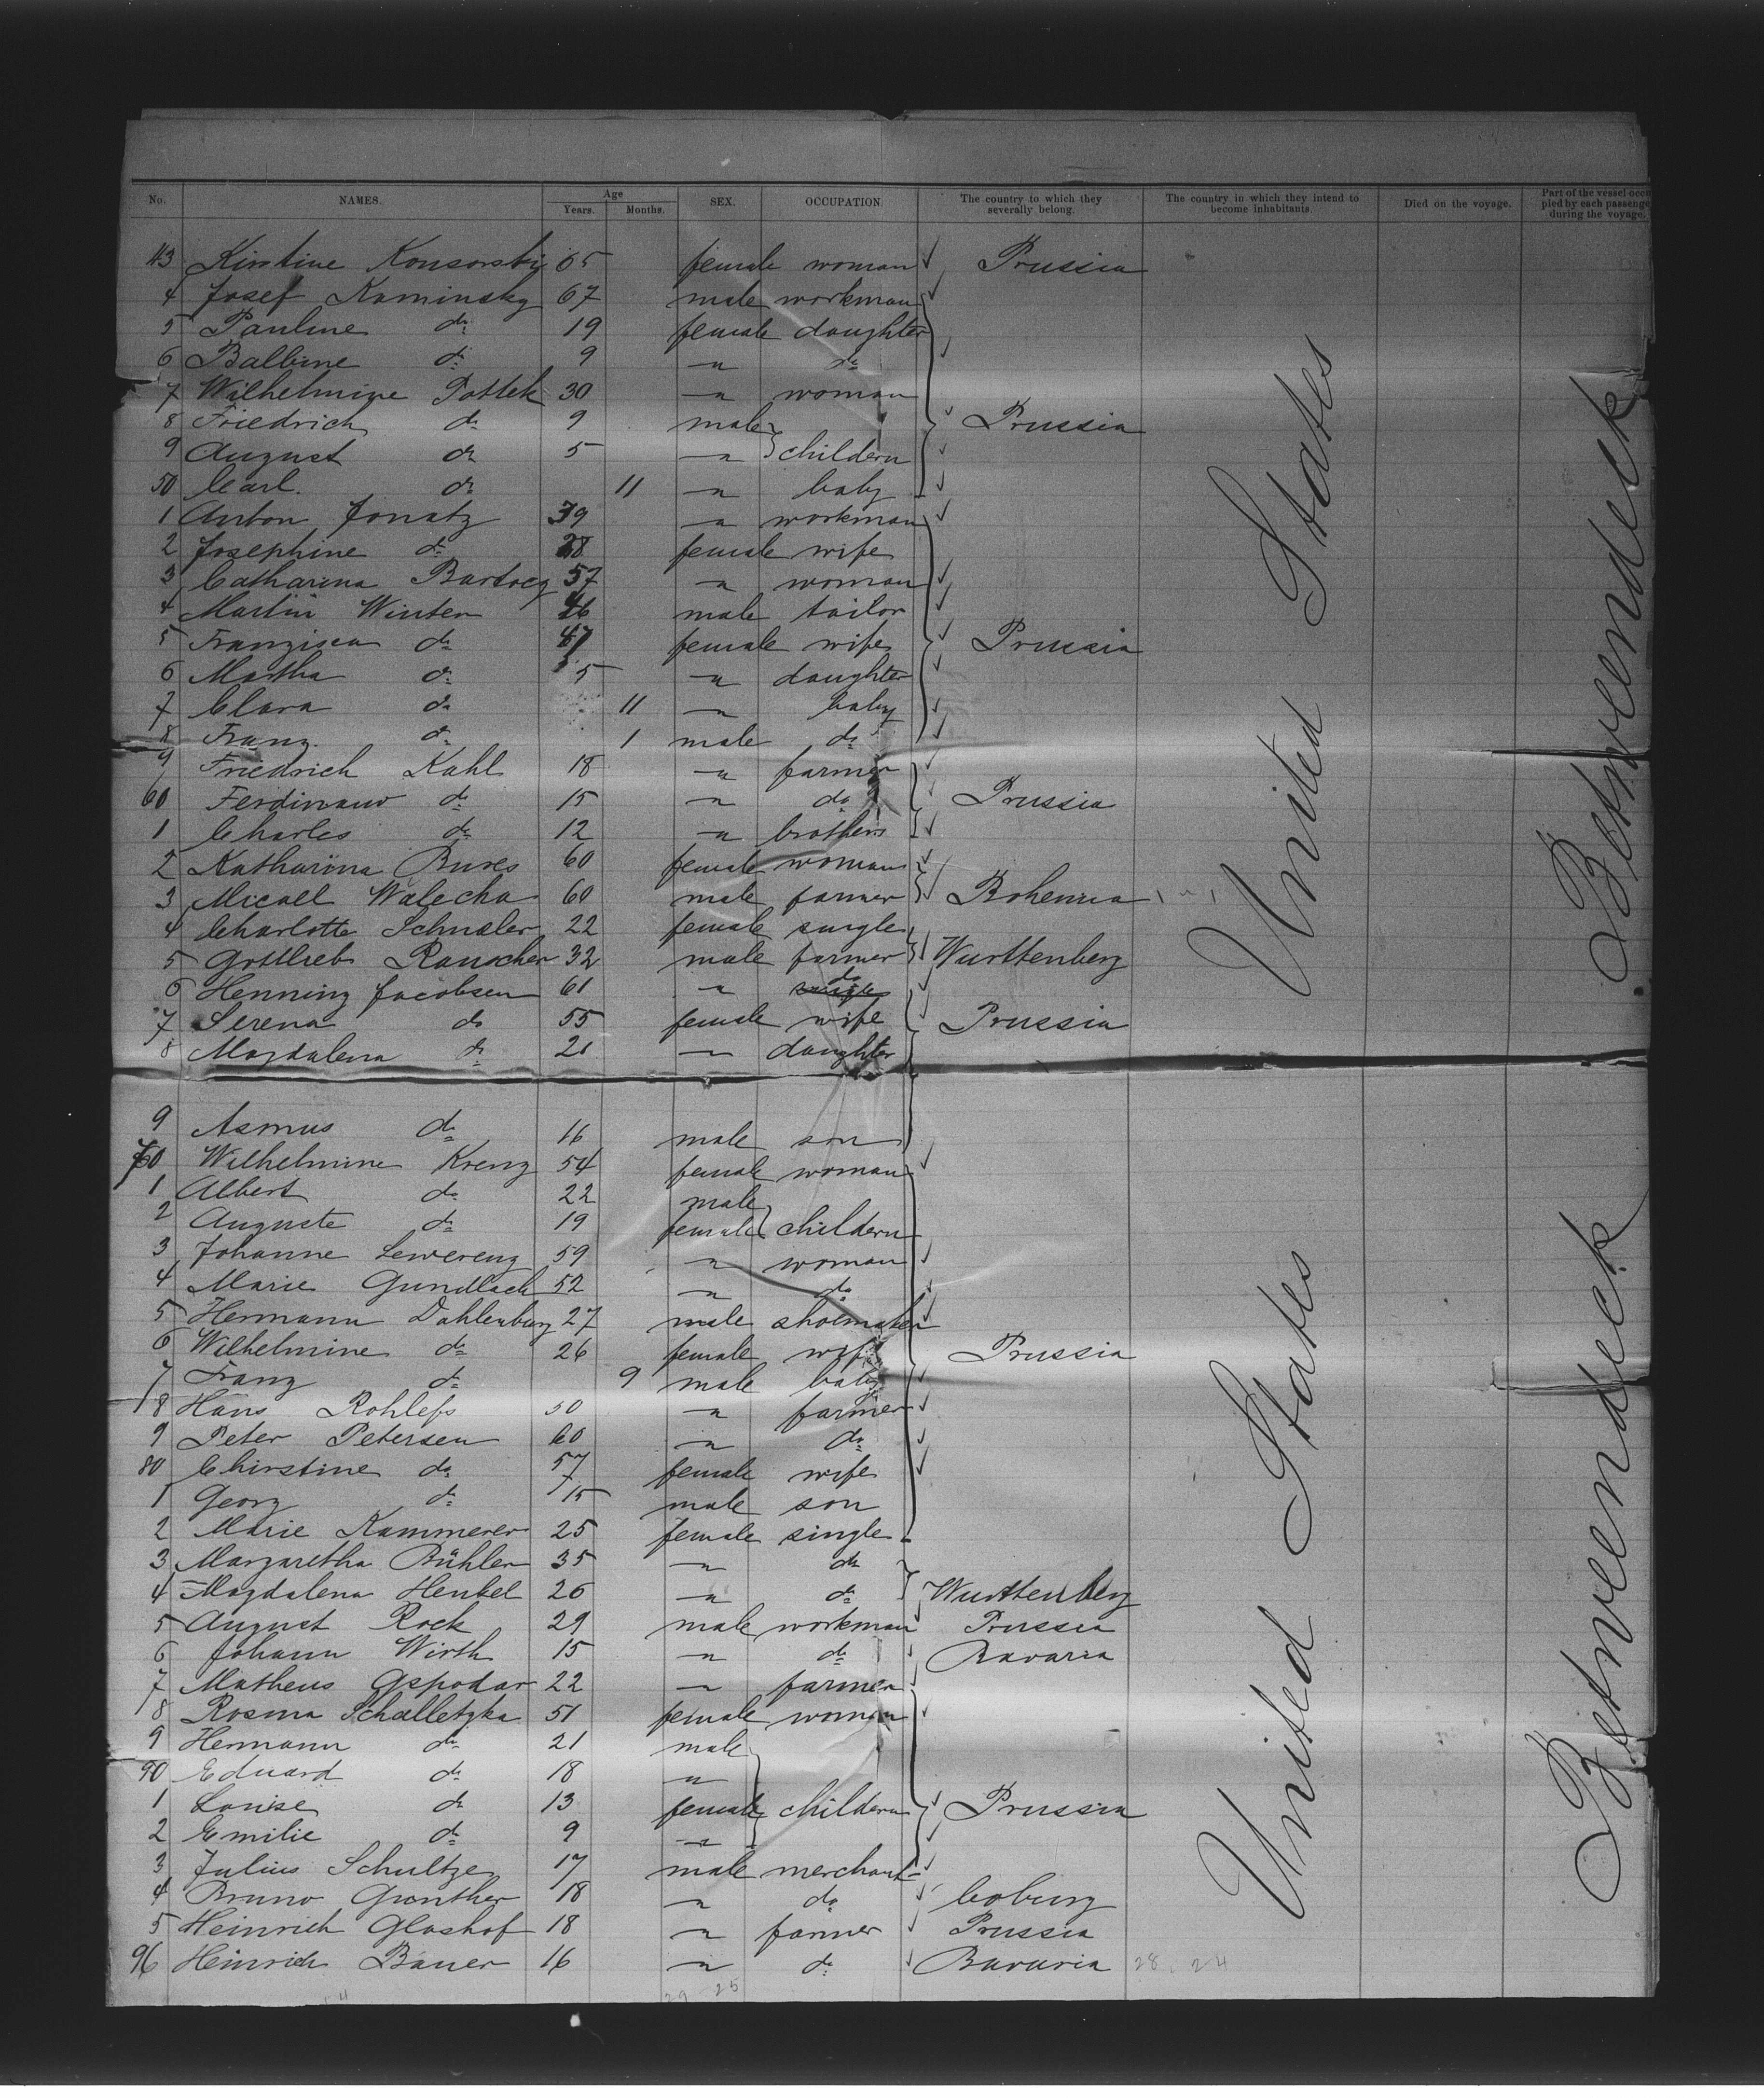 No. NAMES. Age Years. Months. SEX. OCCUPATION. The country to which they severally belong. The country in which they intend to become inhabitants. Died on the voyage. Part of the vessel occupied by each passenger during the voyage.
43 Kirstine 65 female woman Prussia
4 Josef Kaminsky 67 male workman
5 Pauline do 19 female daughter
6 Balbine do 9 " do
7 Wilhelmine Pottek 30 " woman
8 Friedrich do 9 male Prussia
9 August do 5 " childern
50 Carl do 11 " baby
1 Anton Jonatz 39 " workman
2 Josephine do 28 female wife
3 Catharina 57 " woman
4 Martin Winter 46 male tailor
5 Franzisca do 47 female wife Prussia
6 Martha do 5 " daughter
7 Clara do 11 " baby
8 Franz do 1 male do
9 Friedrich Kahl 18 " farmer
60 Ferdinand do 15 " do Prussia
1 Charles do 12 " brothers
2 Katharina Bures 60 female woman
3 Micael Walecka 60 male farmer Bohemia
4 Charlotte 22 female single
5 Gottlieb Rauscher 32 male farmer Wurttenberg
6 Henning Jacobsen 61 " do
7 Serena do 55 female wife Prussia
8 Magdalena do 21 " daughter
9 Asmus do 16 male son
70 Wilhelmine Krenz 54 female woman
1 Albert do 22 male
2 Auguste do 19 female childern
3 Johanne Lewerenz 59 " woman
4 Marie Gundlach 52 " do
5 Hermann Dahlenburg 27 male shoemaker
6 Wilhelmine do 26 female wife Prussia
7 Franz do 9 male baby
8 Hans Rohlefs 50 " farmer
9 Peter Petersen 60 " do
80 Chirstine do 57 female wife
1 Georg do 15 male son
2 Marie Kammerer 25 female single
3 Margaretha Bühler 35 " do
4 Magdalena Henkel 26 " do Wurttenberg
5 August Rock 29 male workman Prussia
6 Johann Wirth 15 " do Bavaria
7 Matheus Gspodar 22 " farmer
8 Rosina Schalletzka 51 female woman
9 Hermann do 21 male
90 Eduard do 18 "
1 Louise do 13 female childern Prussia
2 Emilie do 9 "
3 Julius Schultze 17 male merchant
4 Bruno Gunther 18 " do Coburg
5 Heinrich Glashof 18 " farmer Prussia
96 Heinrich Bauer 16 " do Bavaria 28. 24
29 25
United States
United States
Betweendeck
Betweendeck